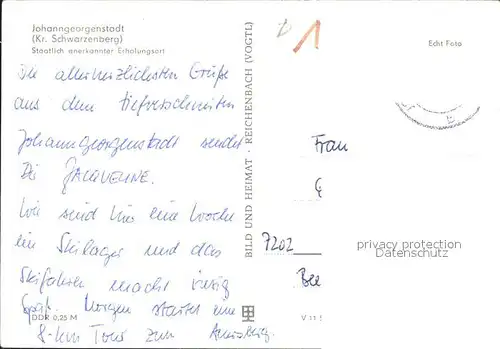 Johanngeorgenstadt
(Kr. Schwarzenberg)
Staatlich anerkannter Erholungsort
Die allerherzlichsten Grüße
aus dem tiefverschneiten
Johanngeorgenstadt sendet
Dir
Wir sind hier eine Woche
im Skilager und das
Skifahren macht riesig
Spaß. Morgen startet eine
8-km Tour zum
DDR 0,25 M
BILD UND HEIMAT · REICHENBACH (VOGTL)
V 11
Echt Foto
Frau
7202
privacy protection
Datenschutz